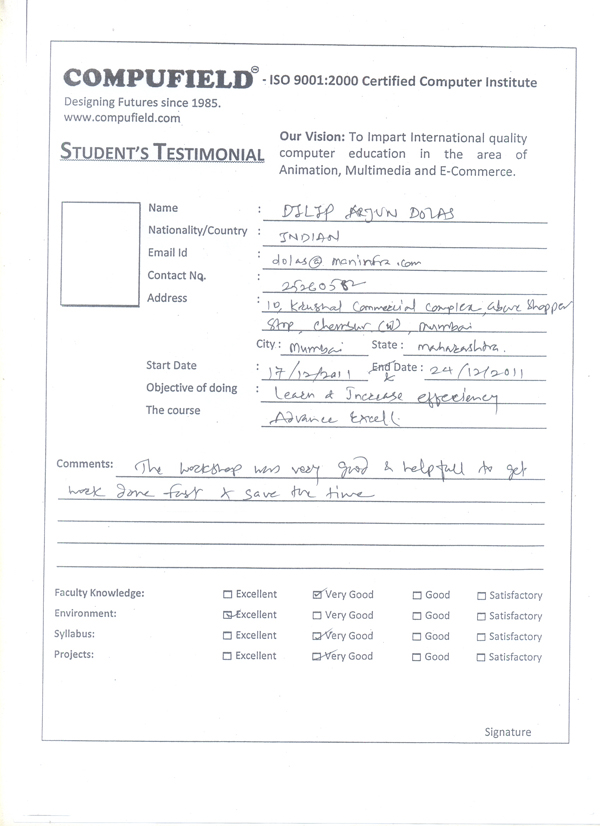 COMPUFIELD - ISO 9001:2000 Certified Computer Institute
Designing Futures since 1985.
www.compufield.com
Our Vision: To Impart International quality
computer education in the area of
Animation, Multimedia and E-Commerce.
STUDENT'S TESTIMONIAL
Name : DILIP ARJUN DOLAS
Nationality/Country : INDIAN
Email Id : dolas@maninfra.com
Contact No. : 25260582
Address : 10, Krushal Commercial Complex, above Shopper
Stop, Chembur (W), Mumbai
City : Mumbai State : maharashtra.
Start Date : 17/12/2011 End Date : 24/12/2011
Objective of doing : Learn & Increase effeciency
The course Advance Excell.
Comments: The workshop was very good & helpfull to get
work done fast & save the time
Faculty Knowledge: Excellent Very Good Good Satisfactory
Environment: Excellent Very Good Good Satisfactory
Syllabus: Excellent Very Good Good Satisfactory
Projects: Excellent Very Good Good Satisfactory
Signature